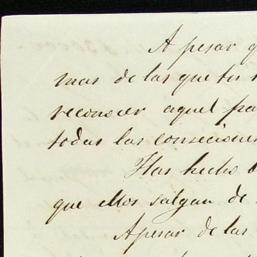 A pesar q
mas de las que tu n
reconocer aquel pa
todas las consecione
Has hecho b
que ellos salgan de
Apesar de las